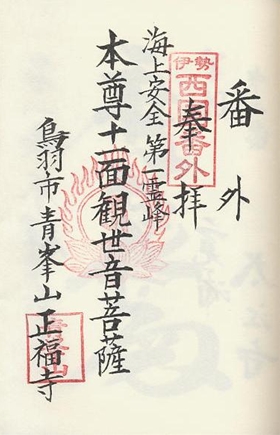 番外
伊勢
西国番外
奉拝
海上安全第一霊峰
本尊十一面観世音菩薩
鳥羽市青峯山正福寺